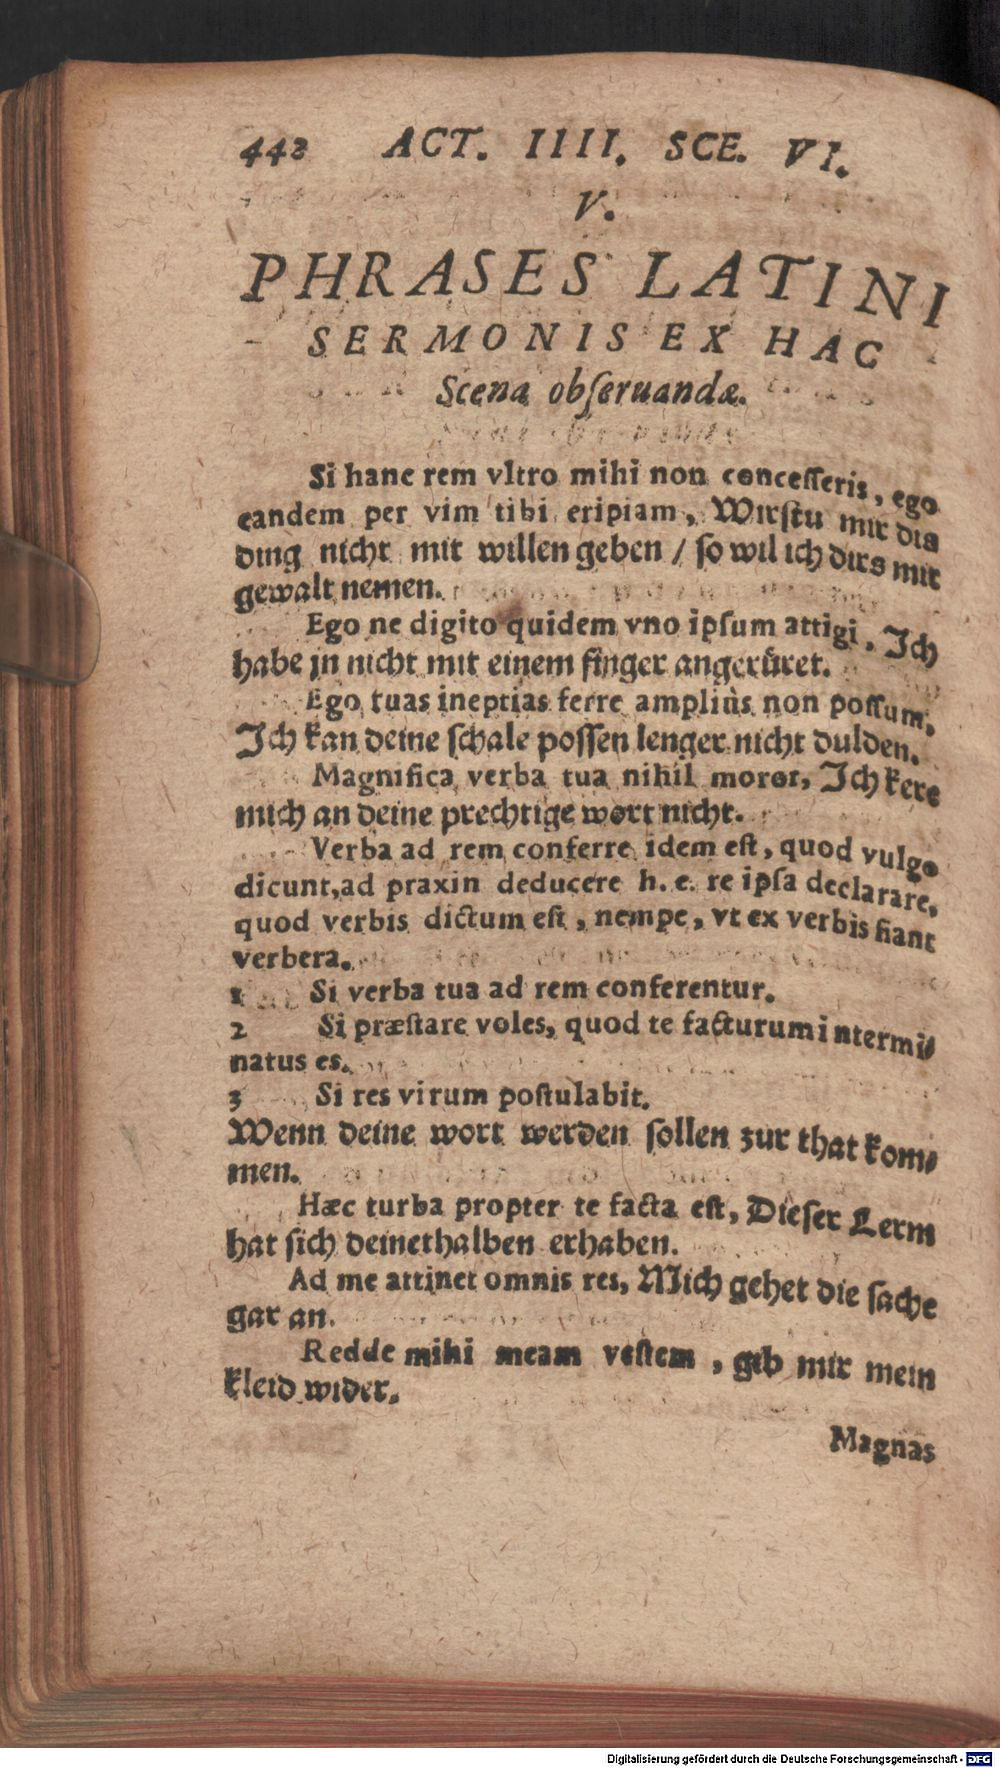 442 ACT. IIII. SCE. VI.
V.
PHRASES LATINI
SERMONIS EX HAC
Scena obſeruandæ.
Si hanc rem vltro mihi non conceſſeris, ego
eandem per vim tibi eripiam, Wirſtu mir das
ding nicht mit willen geben / ſo wil ich dirs mit
gewalt nemen.
Ego ne digito quidem vno ipſum attigi, Ich
habe jn nicht mit einem finger angerüret.
Ego tuas ineptias ferre ampliùs non poſſum,
Ich kan deine ſchale poſſen lenger nicht dulden.
Magnifica verba tua nihil moror, Ich kere
mich an deine prechtige wort nicht.
Verba ad rem conferre idem eſt, quod vulgo
dicunt, ad praxin deducere h. e. re ipſa declarare,
quod verbis dictum eſt, nempe, vt ex verbis fiant
verbera.
1 Si verba tua ad rem conferentur.
2 Si præſtare voles, quod te facturum intermi⸗
natus es.
3 Si res virum poſtulabit.
Wenn deine wort werden ſollen zur that kom⸗
men.
Hæc turba propter te facta eſt, Dieſer Lerm
hat ſich deinethalben erhaben.
Ad me attinet omnis res, Mich gehet die ſache
gar an.
Redde mihi meam veſtem, gib mir mein
kleid wider.
Magnas
Digitalisierung gefördert durch die Deutsche Forschungsgemeinschaft - DFG